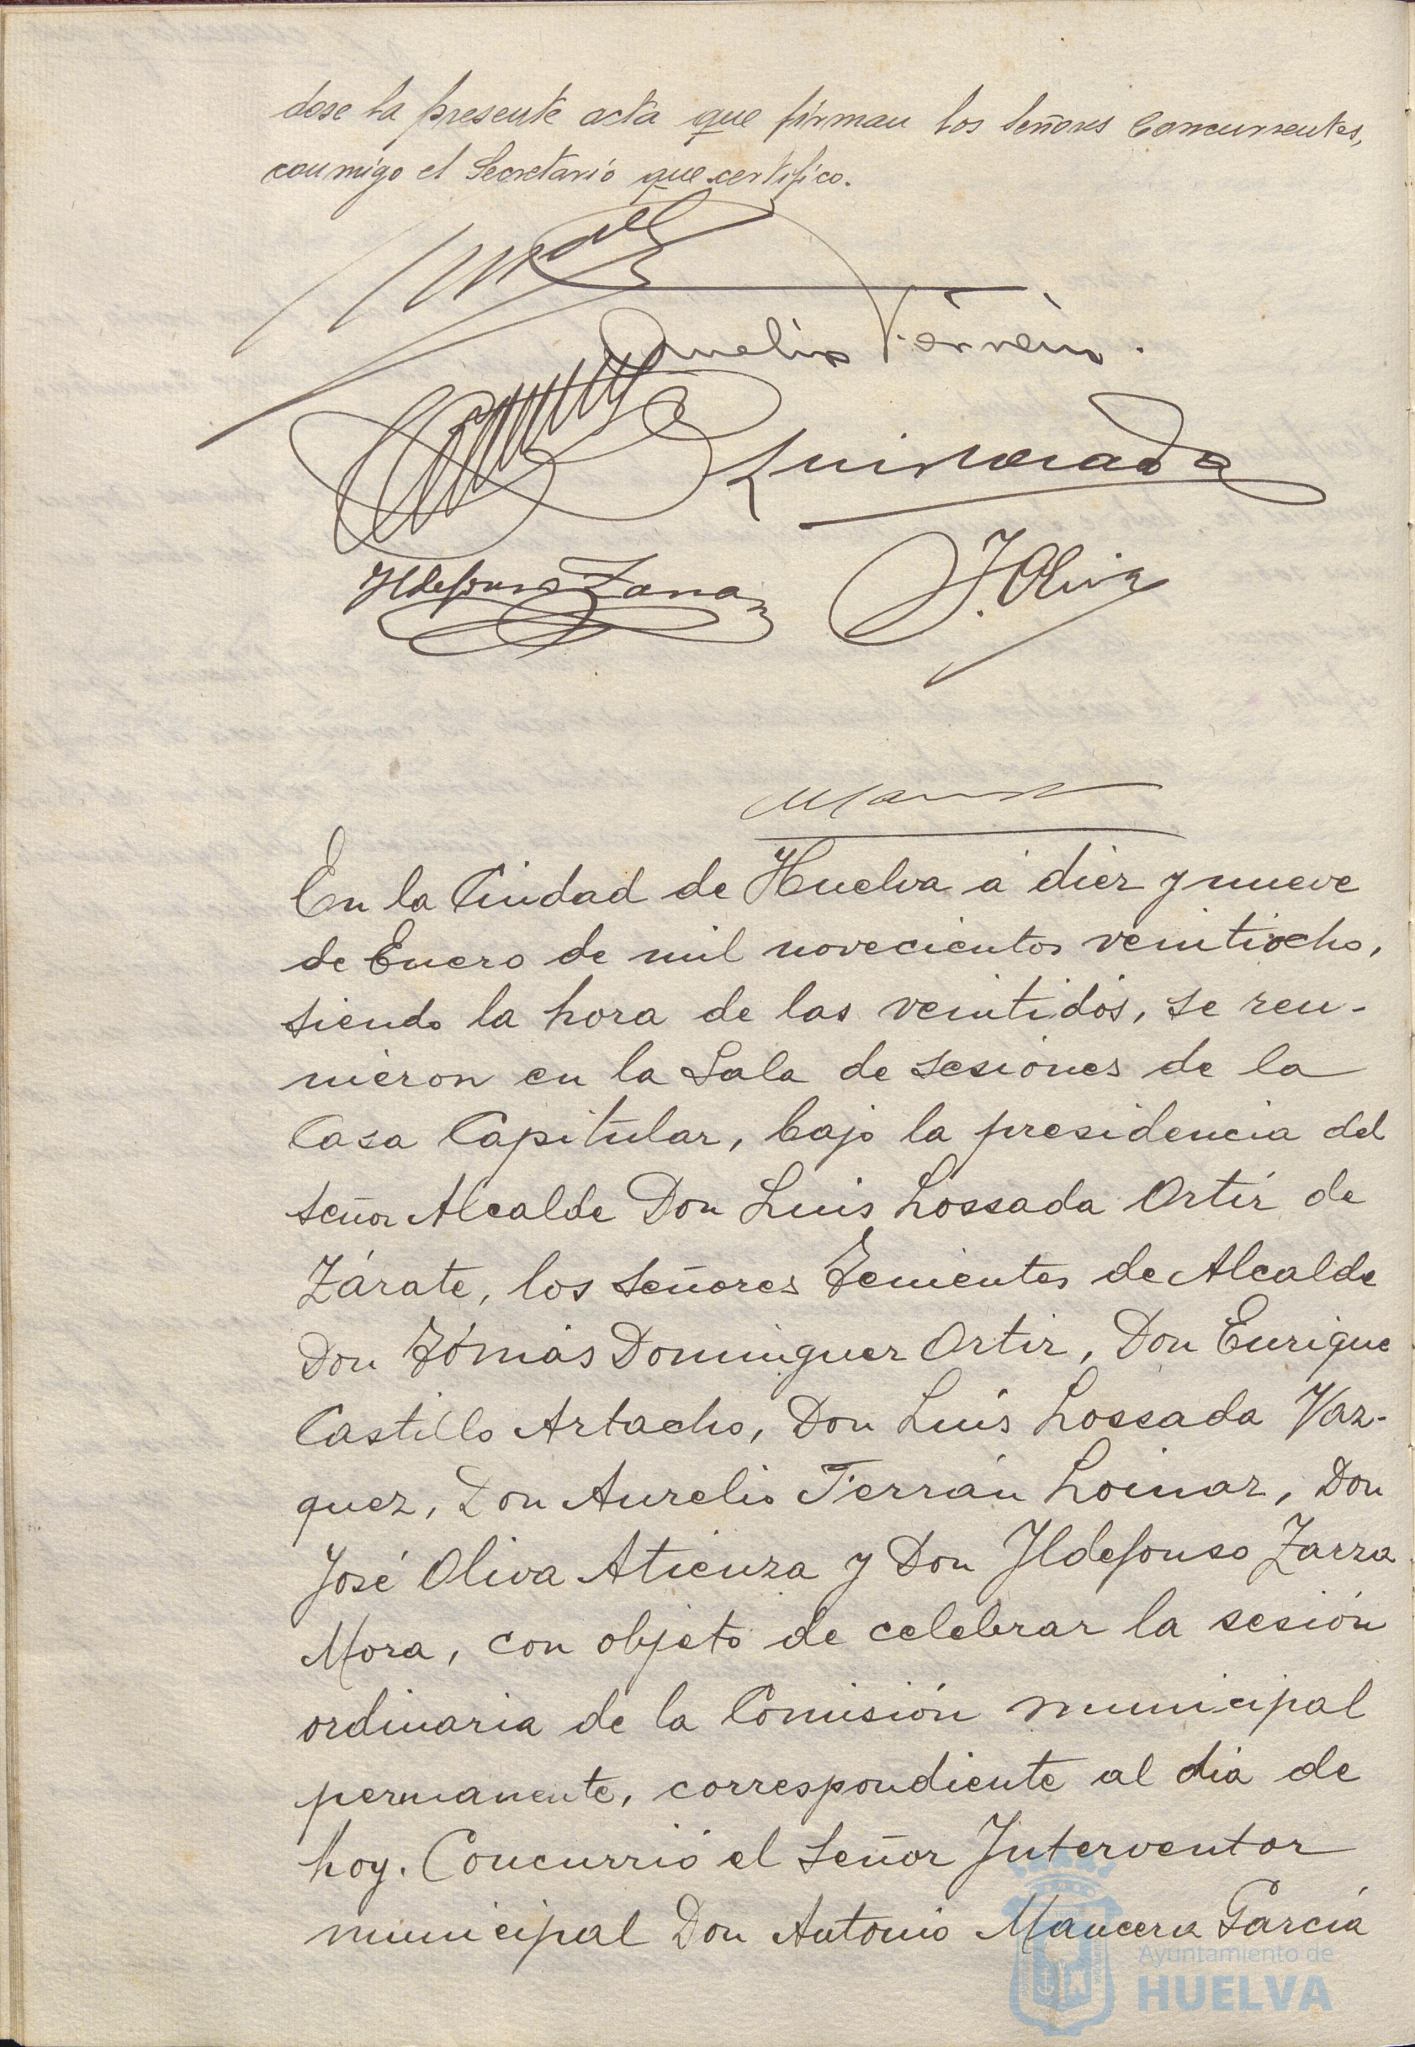 dose la presente acta que firman los Señores Concurrentes,
conmigo el Secretario que certifico.
Aurelio Terrán.
Luis Lossada
Ildefonso Zarra
J. Oliva
En la Ciudad de Huelva á diez y nueve
de Enero de mil novecientos veintiocho,
siendo la hora de las veintidós, se reu-
nieron en la Sala de sesiones de la
Casa Capitular, bajo la presidencia del
Señor Alcalde Don Luis Lossada Ortiz de
Zárate, los Señores Tenientes de Alcalde
Don Tómás Dominguez Ortiz, Don Enrique
Castillo Artacho, Don Luis Lossada Vaz-
quez, Don Aurelio Terrán Loinaz, Don
José Oliva Atienza y Don Ildefonso Zarza
Mora, con objeto de celebrar la sesión
ordinaria de la Comisión municipal
permanente, correspondiente al dia de
hoy. Concurrió el Señor Interventor
municipal Don Antonio Mancera García
Ayuntamiento de
HUELVA